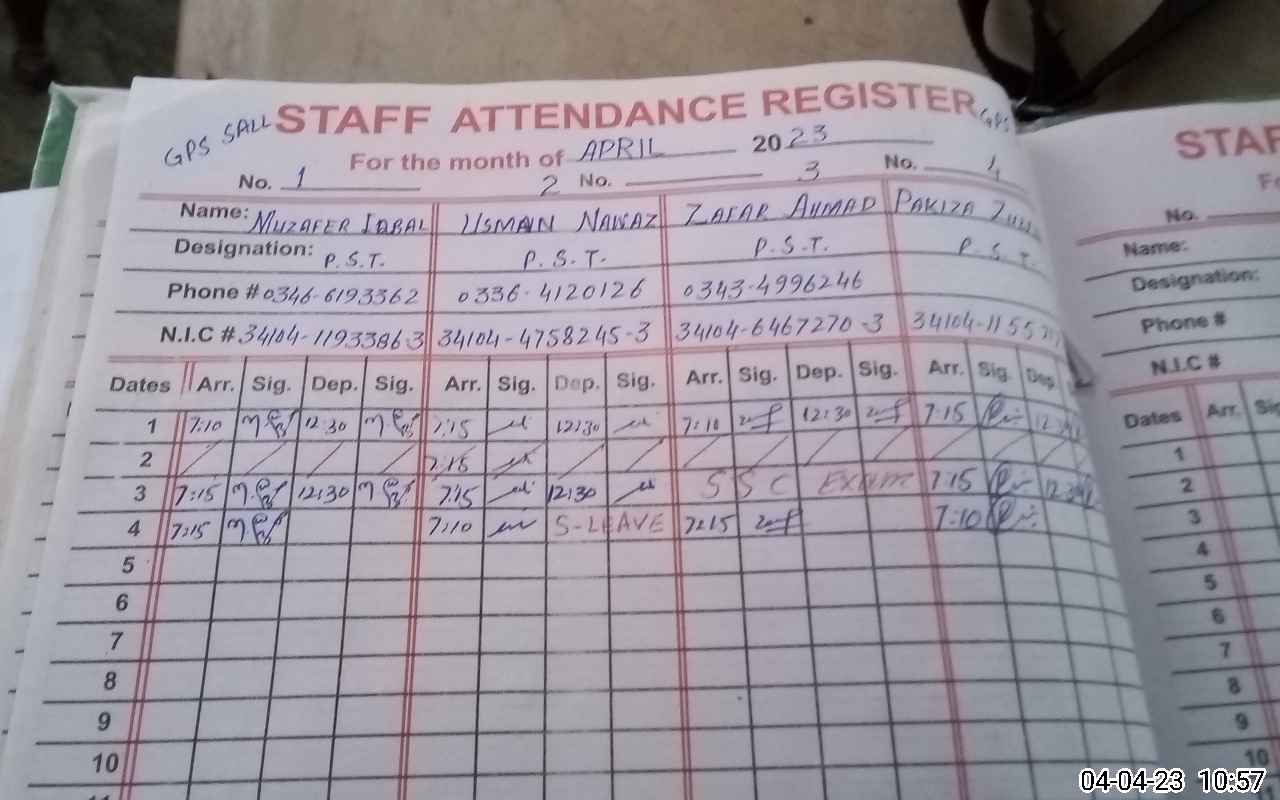 GPS SALL STAFF ATTENDANCE REGISTER GPS
For the month of APRIL 2023
No. 1 2 No. 3 No. 4
Name: MUZAFER IQBAL USMAN NAWAZ ZAFAR AHMAD PAKIZA
Designation: P.S.T. P.S.T. P.S.T. P.S.T.
Phone # 0346-6193362 0336-4120126 0343-4996246
N.I.C #. 34104-1193386-3 34104-4758245-3 34104-6467270-3
Dates Arr. Sig. Dep. Sig. Arr. Sig. Dep. Sig. Arr. Sig. Dep. Sig. Arr. Sig. Dep.
1 7:10 12:30 7:15 12:30 7:10 12:30 7:15 12:30
2 7:15
3 7:15 12:30 7:15 12:30 SSC EXAM 7:15 12:30
4 7:15 7:10 S-LEAVE 7:15 7:10
5
6
7
8
9
10
11
STAF
No.
Name:
Designation:
Phone #
N.I.C #
Dates Arr.
1
2
3
4
5
6
7
8
9
10
04-04-23 10:57